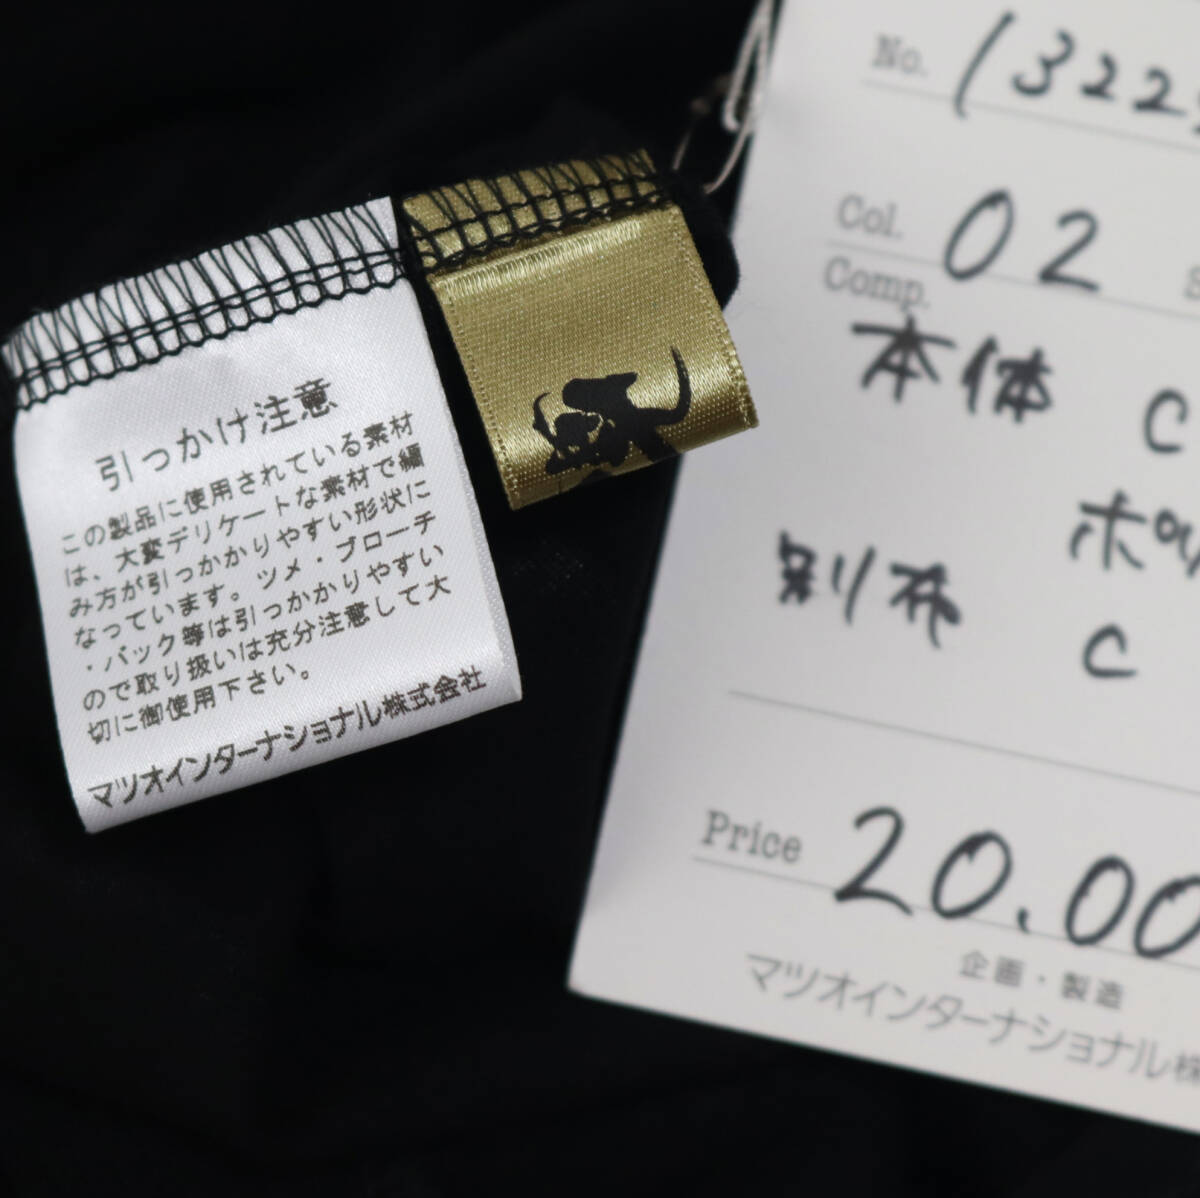 引っかけ注意
この製品に使用されている素材
は、大変デリケートな素材で編
み方が引っかかりやすい形状に
なっています。ツメ・ブローチ
・バック等は引っかかりやすい
ので取り扱いは充分注意して大
切に御使用下さい。
マツオインターナショナル株式会社
No. 1322
Col. 02
Comp.
本体 C
ポリ
別布 C
Price 20.00
企画・製造
マツオインターナショナル株